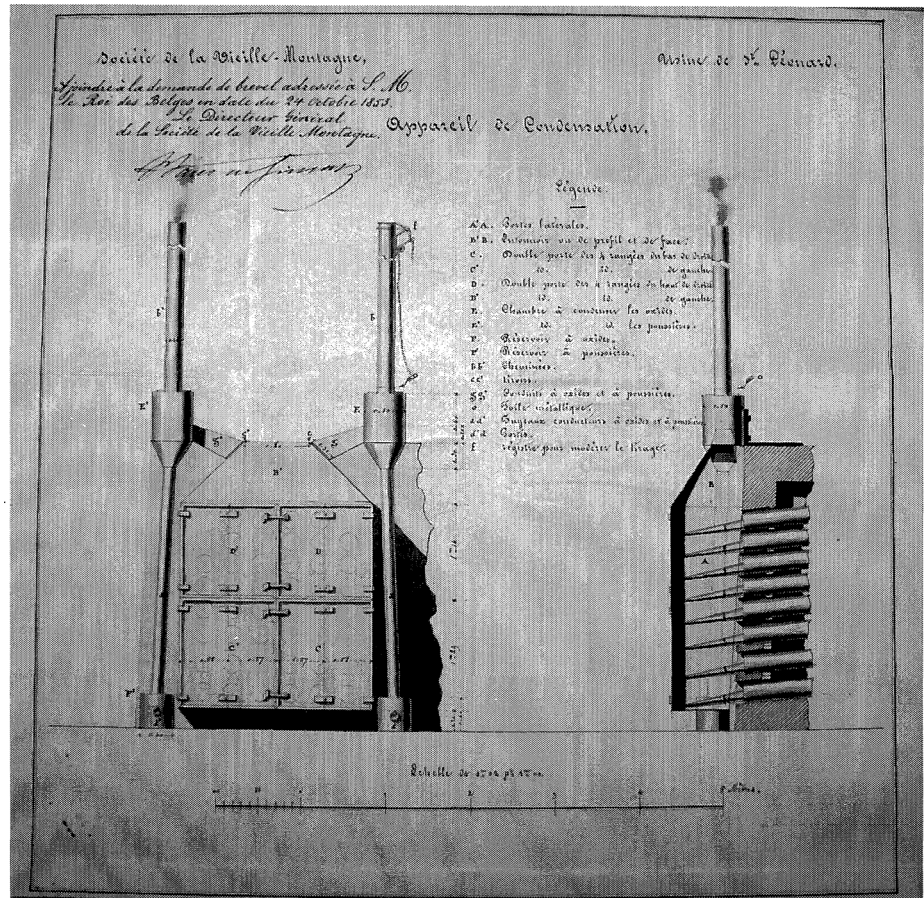 Société de la Vieille-Montagne,
Usine de St. Léonard.
A joindre à la demande de brevet adressée à S. M.
le Roi des Belges en date du 24 Octobre 1853.
Le Directeur Général
de la Société de la Vieille Montagne.
Appareil de Condensation.
Légende.
A'A. Portes latérales.
B'B. Entonnoir vu de profil et de face.
C. Double porte des 4 rangées du bas de droite
C' id. id. de gauche.
D. Double porte des 4 rangées du haut de droite
D' id. id. de gauche.
E. Chambre à condenser les oxides.
E'. id. id. les poussières.
F. Réservoir à oxides.
F'. Réservoir à poussières.
bb' Cheminées.
cc' tirons.
gg' Conduits à oxides et à poussières.
o. Toile métallique.
dd' Tuyaux conducteurs à oxides et à poussières
Portes.
f. régistre pour modérer le tirage.
E'
E
B'
B
D'
D
A
C'
C
F'
Echelle de
5 Mètres.